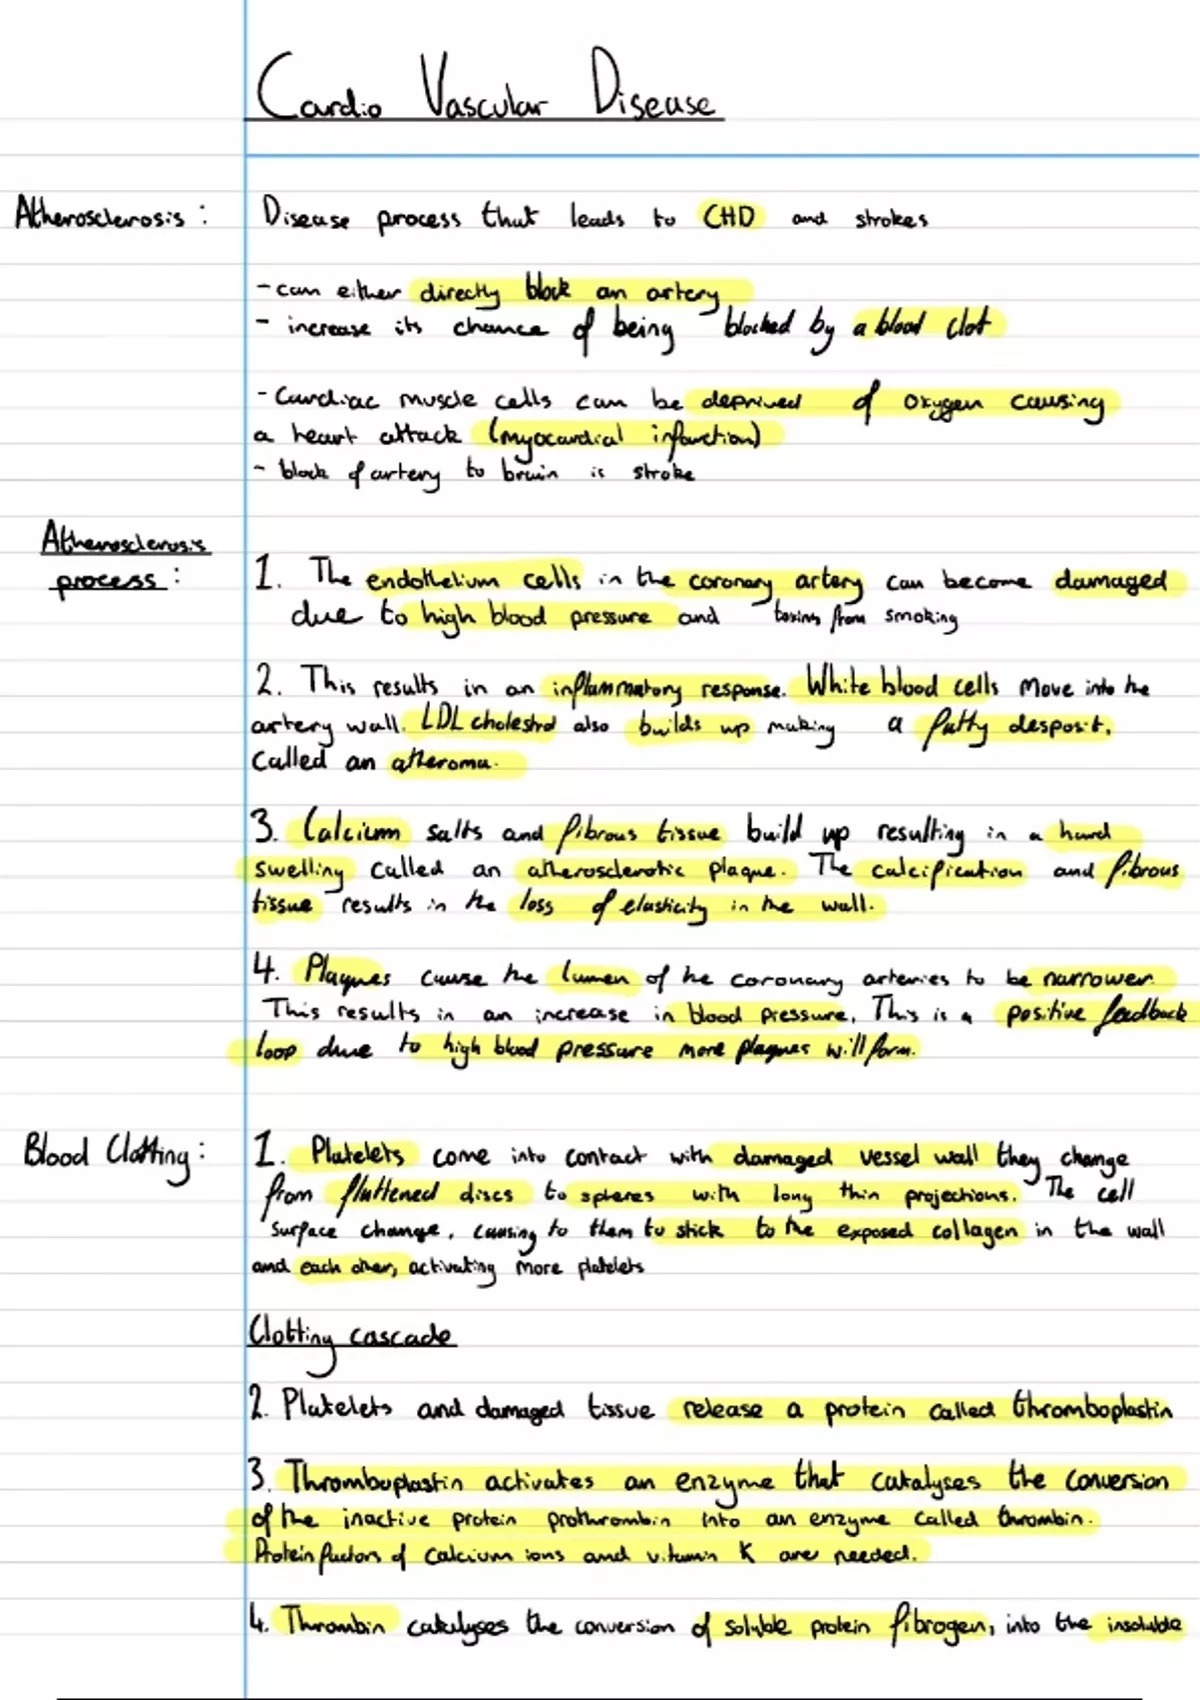 Cardio Vascular Disease
Atherosclerosis : Disease process that leads to CHD and strokes
- can either directly block an artery
- increase its chance of being blocked by a blood clot
- Cardiac muscle cells can be deprived of oxygen causing
a heart attack (myocardial infarction)
- block of artery to brain is stroke
Atherosclerosis
process :
1. The endothelium cells in the coronary artery can become damaged
due to high blood pressure and toxins from smoking
2. This results in an inflammatory response. White blood cells move into the
artery wall. LDL cholestrol also builds up making a fatty desposit,
called an atheroma.
3. Calcium salts and fibrous tissue build up resulting in a hard
swelling called an atherosclerotic plaque. The calcification and fibrous
tissue results in the loss of elasticity in the wall.
4. Plaques cause the lumen of the coronary arteries to be narrower.
This results in an increase in blood pressure. This is a positive feedback
loop due to high blood pressure more plaques will form.
Blood Clotting : 1. Platelets come into contact with damaged vessel wall they change
from flattened discs to spheres with long thin projections. The cell
surface change, causing to them to stick to the exposed collagen in the wall
and each other, activating more platelets
Clotting cascade
2. Platelets and damaged tissue release a protein called thromboplastin
3. Thromboplastin activates an enzyme that catalyses the conversion
of the inactive protein prothrombin into an enzyme called thrombin.
Protein factors of calcium ions and vitamin K are needed.
4. Thrombin catalyses the conversion of soluble protein fibrogen, into the insoluble